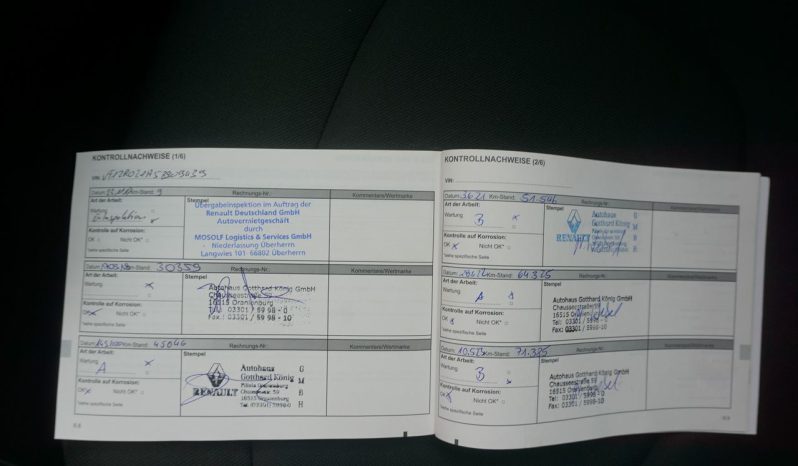 KONTROLLNACHWEISE (1/6)
VIN:
Datum: Km-Stand: 9
Rechnungs-Nr.:
Kommentare/Wertmarke
Art der Arbeit:
Wartung
Stempel
Übergabeinspektion im Auftrag der
Renault Deutschland GmbH
Autovermietgeschäft
durch
MOSOLF Logistics & Services GmbH
- Niederlassung Überherrn -
Langwies 101· 66802 Überherrn
Kontrolle auf Korrosion:
OK Nicht OK*
*siehe spezifische Seite
Datum: Km-Stand: 30359
Rechnungs-Nr.:
Kommentare/Wertmarke
Art der Arbeit:
Wartung x
Stempel
Autohaus Gotthard König GmbH
Chausseestraße 59
16515 Oranienburg
Tel.: 03301 / 59 98 - 0
Fax: 03301 / 59 98 - 10
Kontrolle auf Korrosion:
OK x Nicht OK*
*siehe spezifische Seite
Datum: Km-Stand: 45046
Rechnungs-Nr.:
Kommentare/Wertmarke
Art der Arbeit:
Wartung x
A
Stempel
RENAULT
Autohaus
Gotthard König
Filiale Oranienburg
Chausseestr. 59
16515 Oranienburg
Tel. 03301 5998-0
G
M
B
H
Kontrolle auf Korrosion:
OK x Nicht OK*
*siehe spezifische Seite
6.8
KONTROLLNACHWEISE (2/6)
VIN:
Datum: Km-Stand: 51.546
Rechnungs-Nr.:
Kommentare/Wertmarke
Art der Arbeit:
Wartung x
B
Stempel
RENAULT
Autohaus
Gotthard König
G
M
B
H
Kontrolle auf Korrosion:
OK x Nicht OK*
*siehe spezifische Seite
Datum: Km-Stand: 64.325
Rechnungs-Nr.:
Kommentare/Wertmarke
Art der Arbeit:
Wartung
A
Stempel
Autohaus Gotthard König GmbH
Chausseestraße 59
16515 Oranienburg
Tel: 03301 / 59 98 - 0
Fax: 03301 / 59 98 - 10
Kontrolle auf Korrosion:
OK Nicht OK*
*siehe spezifische Seite
Datum: Km-Stand: 71.325
Rechnungs-Nr.:
Kommentare/Wertmarke
Art der Arbeit:
Wartung
B
Stempel
Autohaus Gotthard König GmbH
Chausseestraße 59
16515 Oranienburg
Tel: 03301 / 59 98 - 0
Fax: 03301 / 59 98 - 10
Kontrolle auf Korrosion:
OK x Nicht OK*
*siehe spezifische Seite
6.9